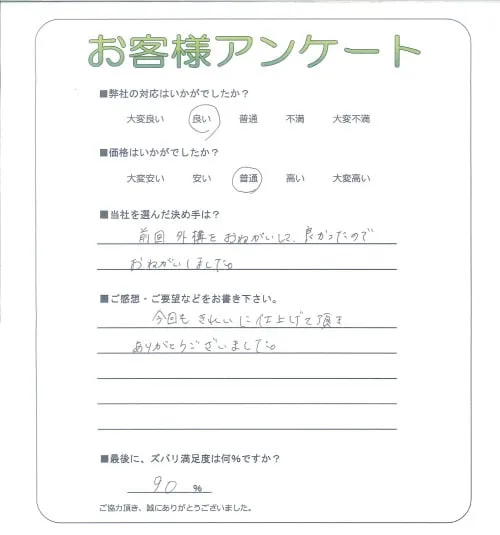 お客様アンケート
■弊社の対応はいかがでしたか？
大変良い 良い 普通 不満 大変不満
■価格はいかがでしたか？
大変安い 安い 普通 高い 大変高い
■当社を選んだ決め手は？
前回 外構をおねがいして、良かったので
おねがいしました。
■ご感想・ご要望などをお書き下さい。
今回もきれいに仕上げて頂き
ありがとうございました。
■最後に、ズバリ満足度は何％ですか？
90 ％
ご協力頂き、誠にありがとうございました。